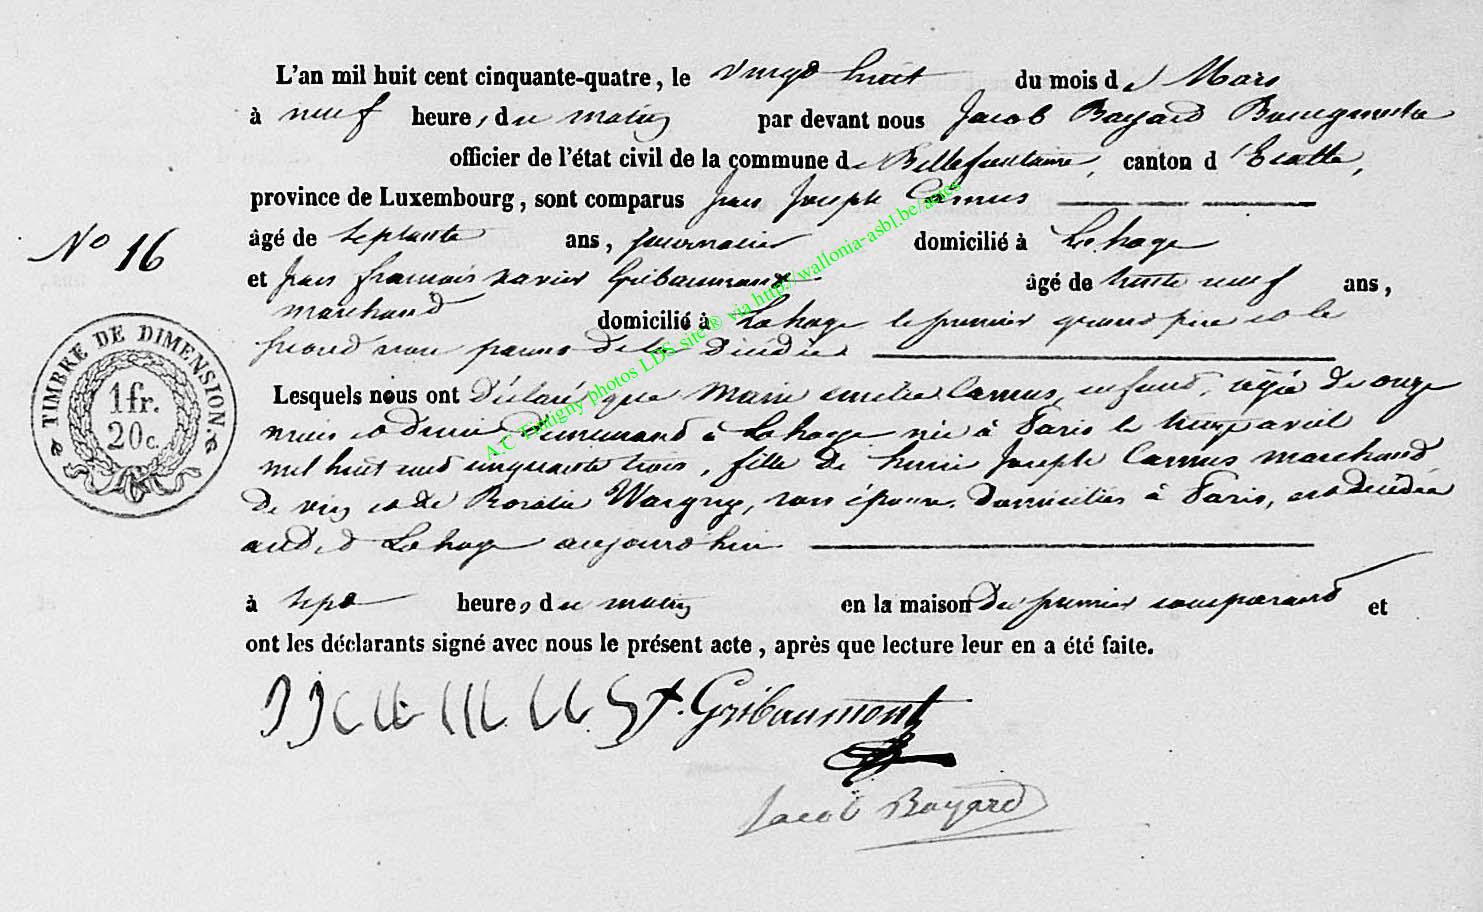 L'an mil huit cent cinquante-quatre, le vingt huit du mois de Mars
à neuf heures, du matin par devant nous Jacob Bayard Bourgmestre
officier de l'état civil de la commune de Bellefontaine, canton d'Etalle,
province de Luxembourg, sont comparus Jean Joseph Camus
âgé de septante ans, journalier domicilié à Lahage
N° 16
et Jean françois xavier Gribaumont âgé de trente neuf ans,
marchand domicilié à Lahage le premier grand père et le
second non parent de la décédée
TIMBRE DE DIMENSION.
1 fr.
20 c.
Lesquels nous ont déclaré que Marie Camus, enfant, âgée de onze
mois et demeurant à Lahage née à Paris le treize avril
mil huit cent cinquante trois, fille de henri Joseph Camus marchand
de vin et de Rosalie Wargny, son épouse, domiciliés à Paris, est décédée
audit Lahage aujourd'hui
à sept heures, du matin en la maison du premier comparant et
ont les déclarants signé avec nous le présent acte, après que lecture leur en a été faite.
Gribaumont
Jacob Bayard
A.C Tintigny photos LDS site® via http://wallonia-asbl.be/actes